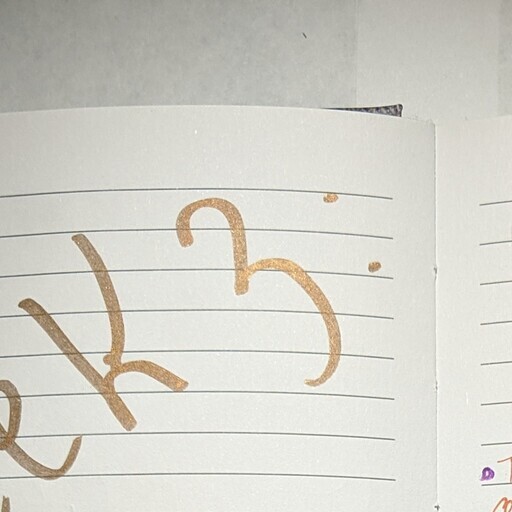 ek 3: